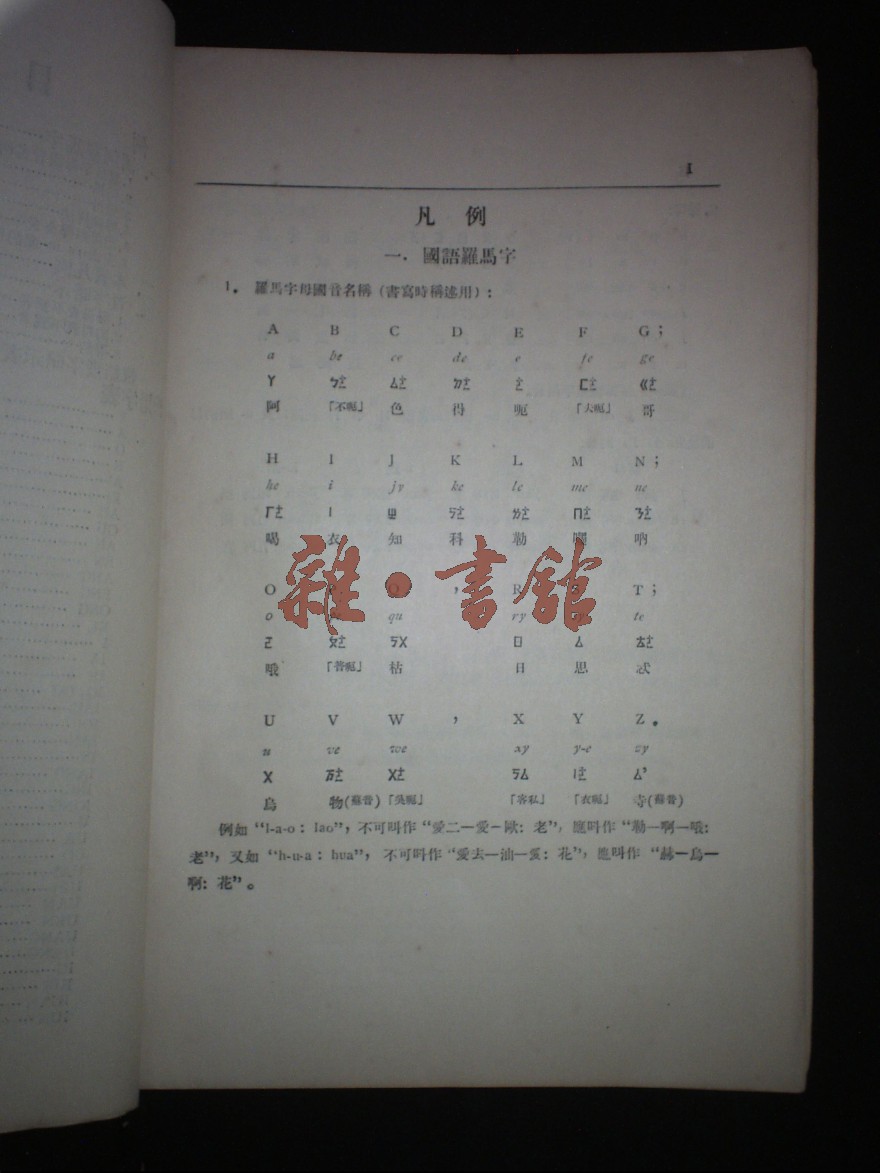 1
凡 例
一．國語羅馬字
1。 羅馬字母國音名稱（書寫時稱述用）：
A B C D E F G；
a be ce de e fe ge
ㄚ ㄅㄜ ㄙㄜ ㄉㄜ ㄜ ㄈㄜ ㄍㄜ
阿 「不呃」 色 得 呃 「夫呃」 哥
H I J K L M N；
he i jy ke le me ne
ㄏㄜ ㄧ ㄓ ㄎㄜ ㄌㄜ ㄇㄜ ㄋㄜ
喝 衣 知 科 勒 吶
O ， R T；
o qu ry te
ㄛ ㄆㄜ ㄎㄨ ㄖ ㄙ ㄊㄜ
哦 「普呃」 枯 日 思 忒
U V W ， X Y Z。
u ve we xy y-e zy
ㄨ ㄪㄜ ㄨㄜ ㄎㄙ ㄧㄜ ㄙ’
烏 物（蘇音） 「吳呃」 「客私」 「衣呃」 寺（蘇音）
例如“l-a-o：lao”，不可叫作“愛二—愛—歐：老”，應叫作“勒—啊—哦：
老”，又如“h-u-a：hua”，不可叫作“愛去—油—愛：花”，應叫作“赫—烏—
啊：花”。
雜・書館
目